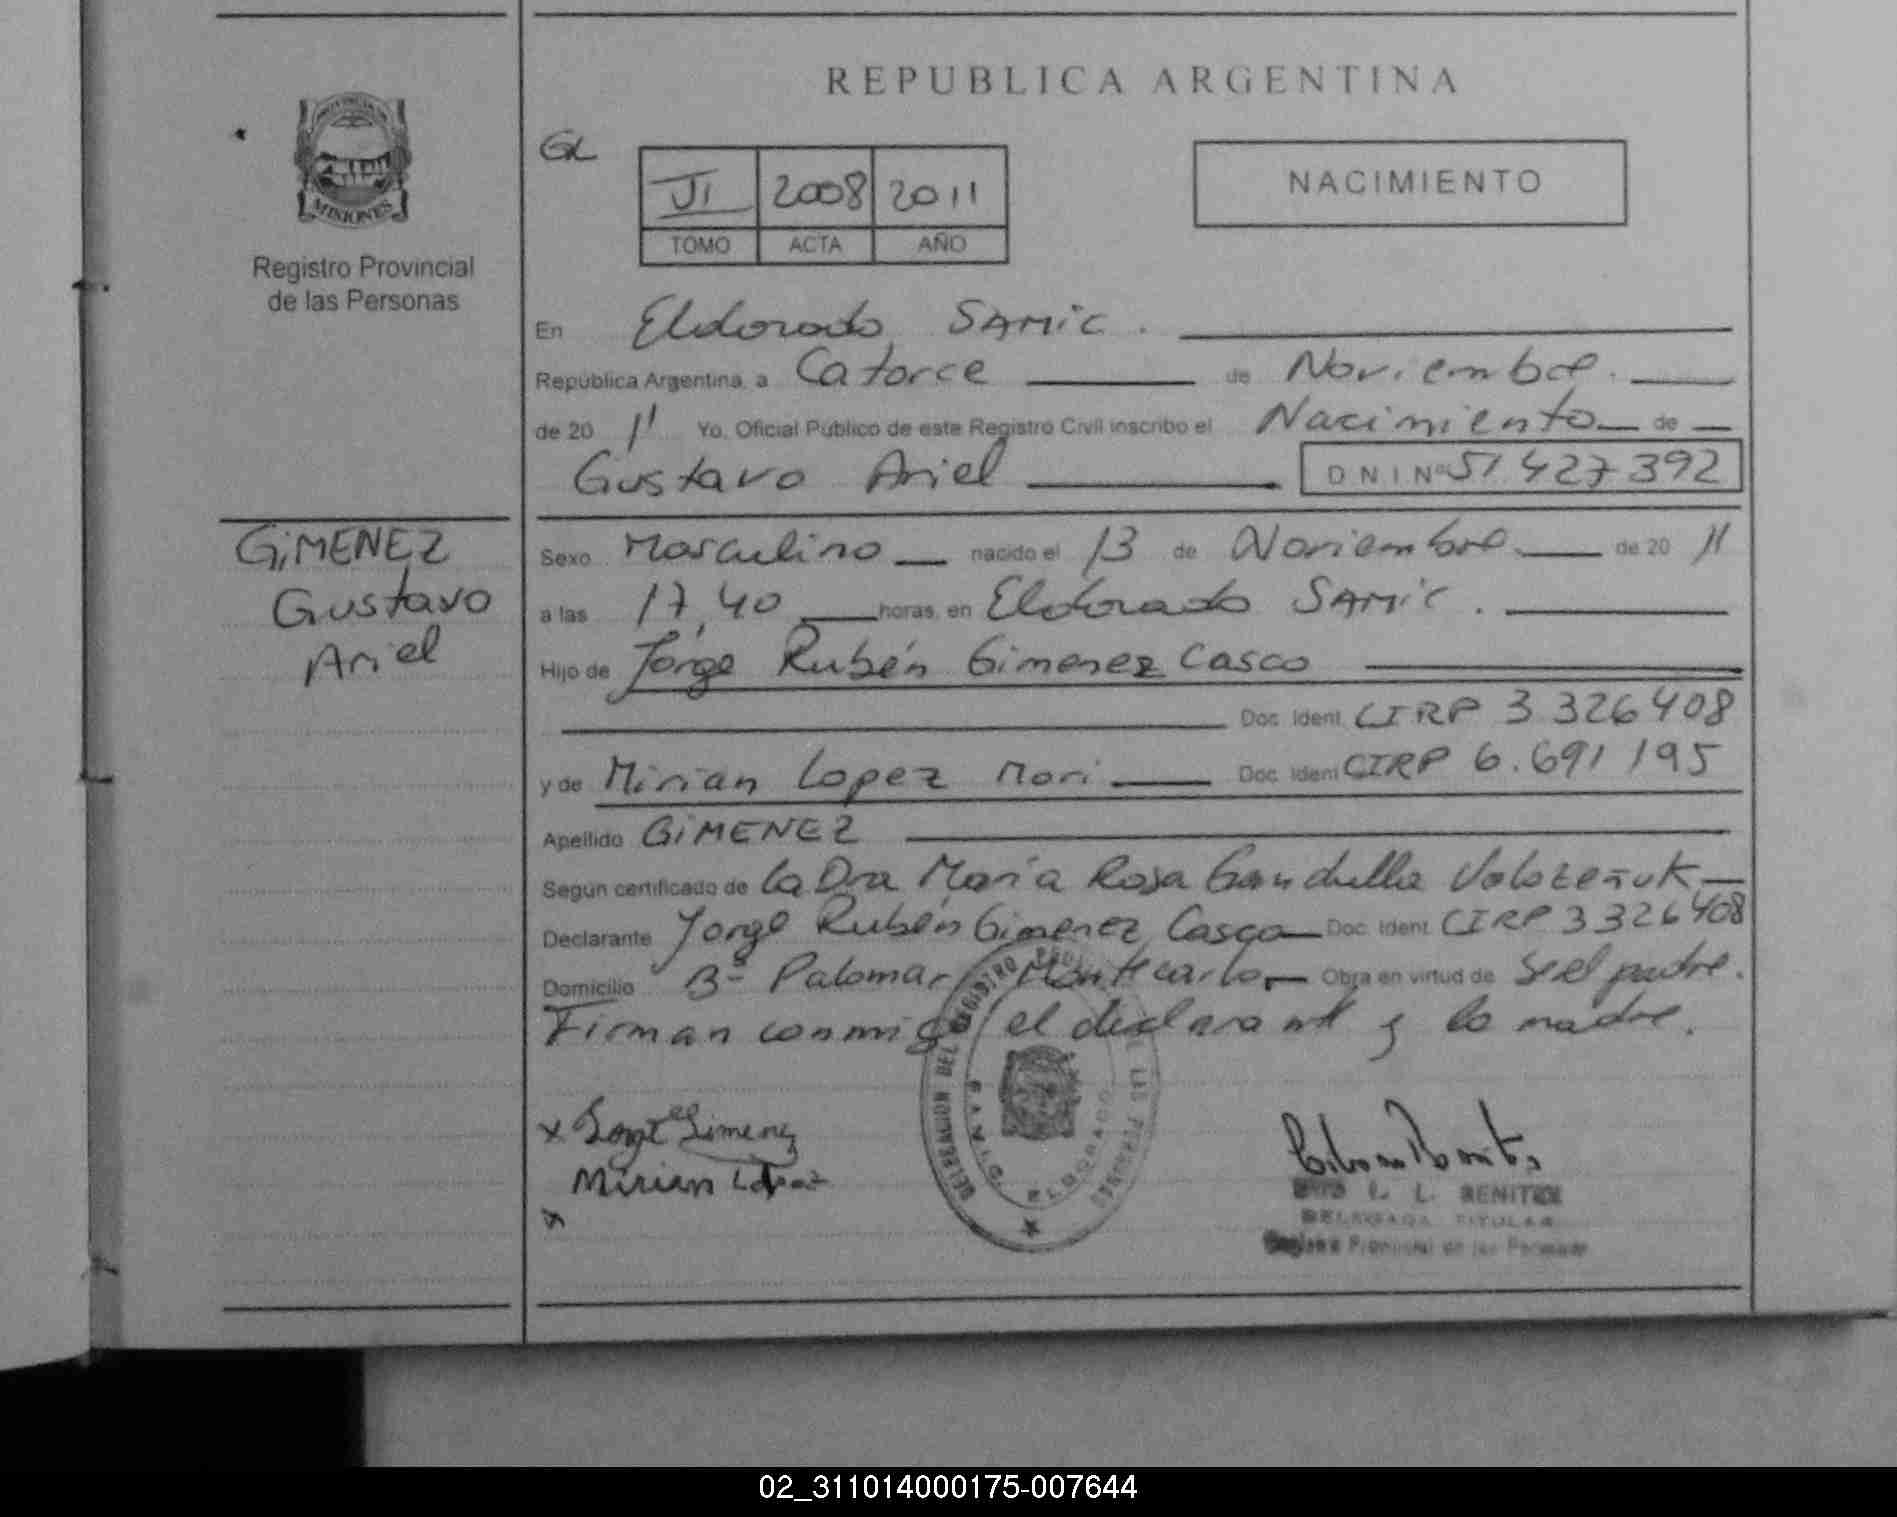 REPUBLICA ARGENTINA
PROVINCIA DE
MISIONES
Registro Provincial
de las Personas
GL
VI 2008 2011
TOMO ACTA AÑO
NACIMIENTO
En Eldorado SAMIC.
República Argentina, a Catorce de Noviembre.
de 20 11 Yo, Oficial Público de este Registro Civil inscribo el Nacimiento de
Gustavo Ariel D N I Nº 51 427 392
GiMENEZ
Gustavo
Ariel
Sexo Masculino nacido el 13 de Noviembre. de 20 11
a las 17,40 horas, en Eldorado SAMIC.
Hijo de Jorge Rubén Gimenez Casco
Doc. Ident. CIRP 3 326 408
y de Mirian Lopez Mori Doc. Ident. CIRP 6.691 195
Apellido GiMENEZ
Según certificado de la Dra María Rosa
Declarante Jorge Rubén Gimenez Casco Doc. Ident. CIRP 3 326 408
Domicilio Bº Palomar Montecarlo Obra en virtud de se el padre.
Firman conmigo el declarant y la madre.
DELEGACION DEL REGISTRO DE LAS PERSONAS
S.A.M.I.C. ELDORADO
x Jorge Gimenez
Mirian Lopez
x
L. L. BENITEZ
DELEGADA TITULAR
Registro Provincial de las Personas
02_311014000175-007644